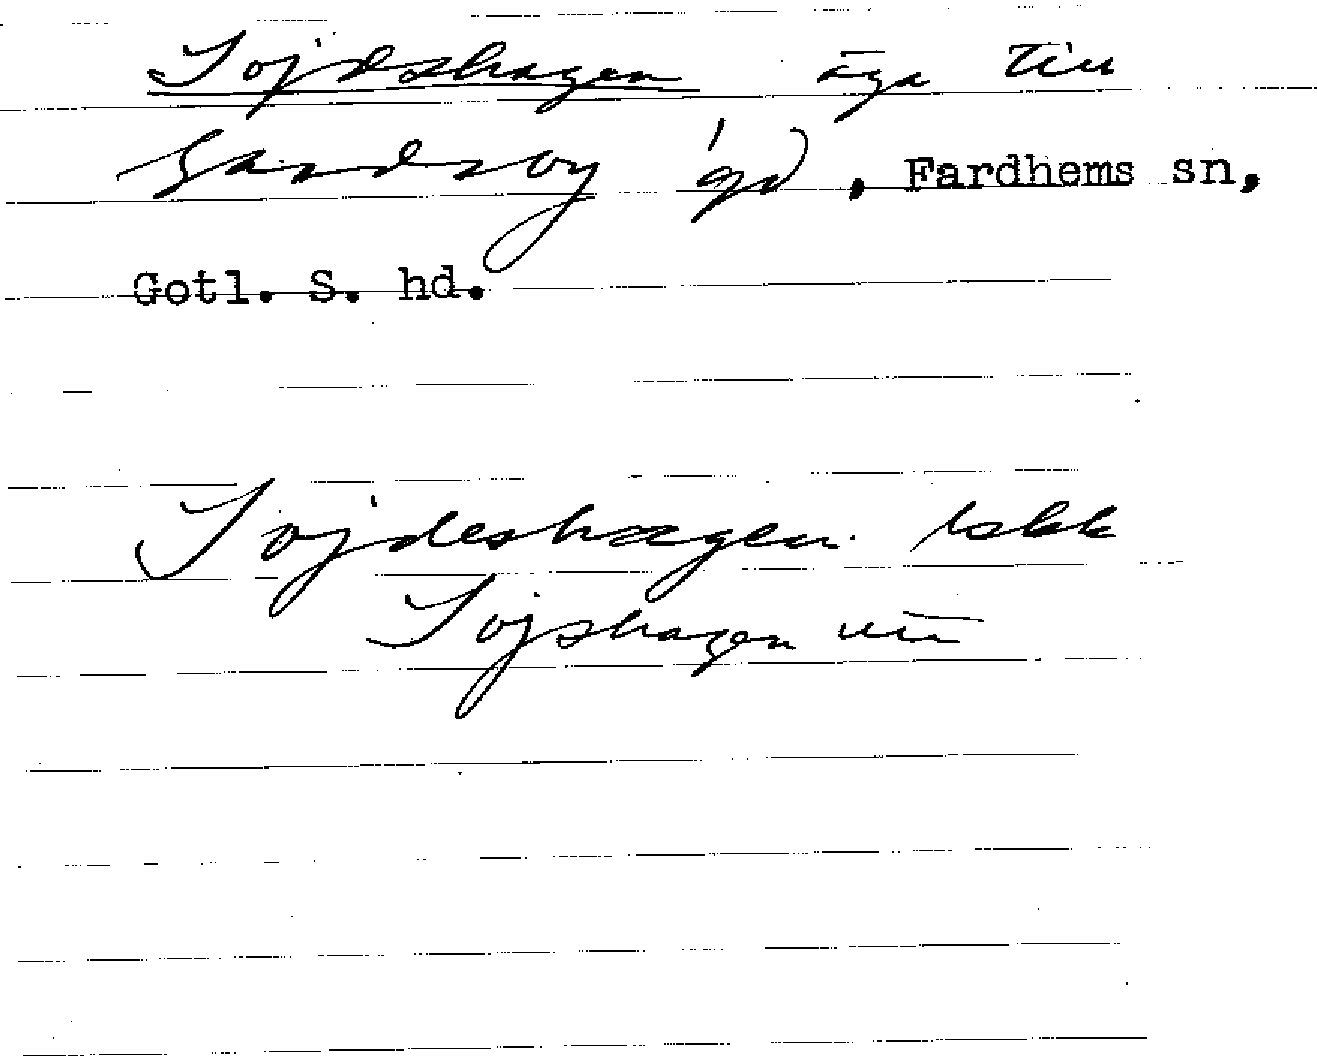 Sojdeshagen äga till
Sandsoy gd, Fardhems sn,
Gotl. S. hd.
Sojdeshagen
Sojshagen